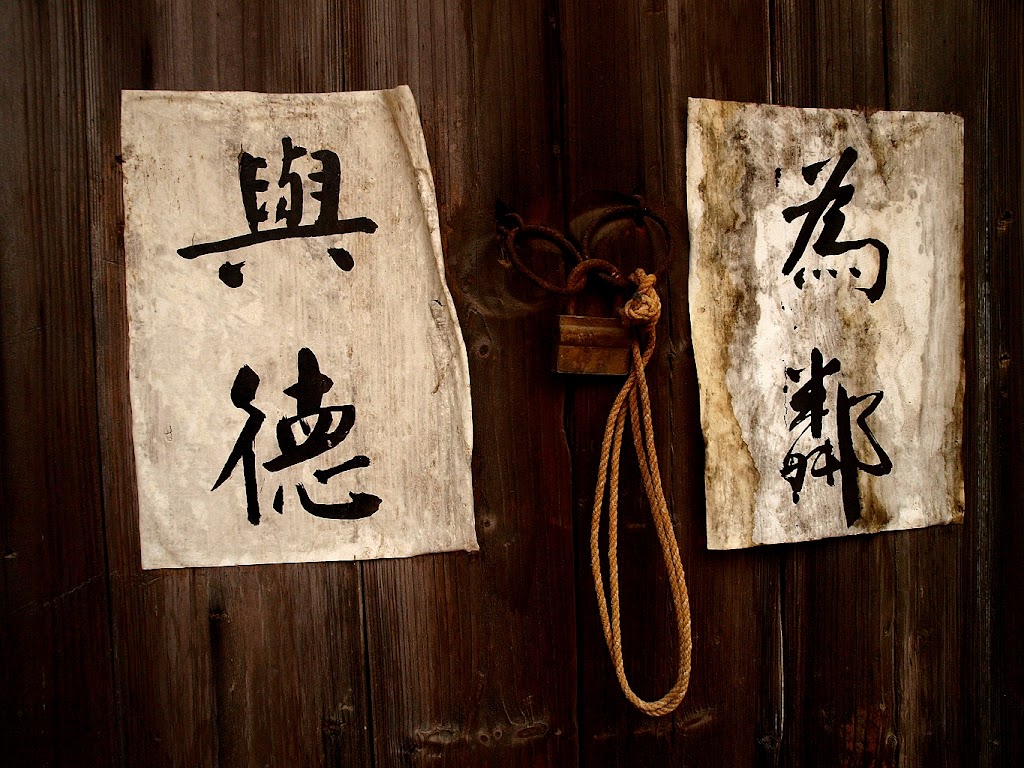 與德
為鄰